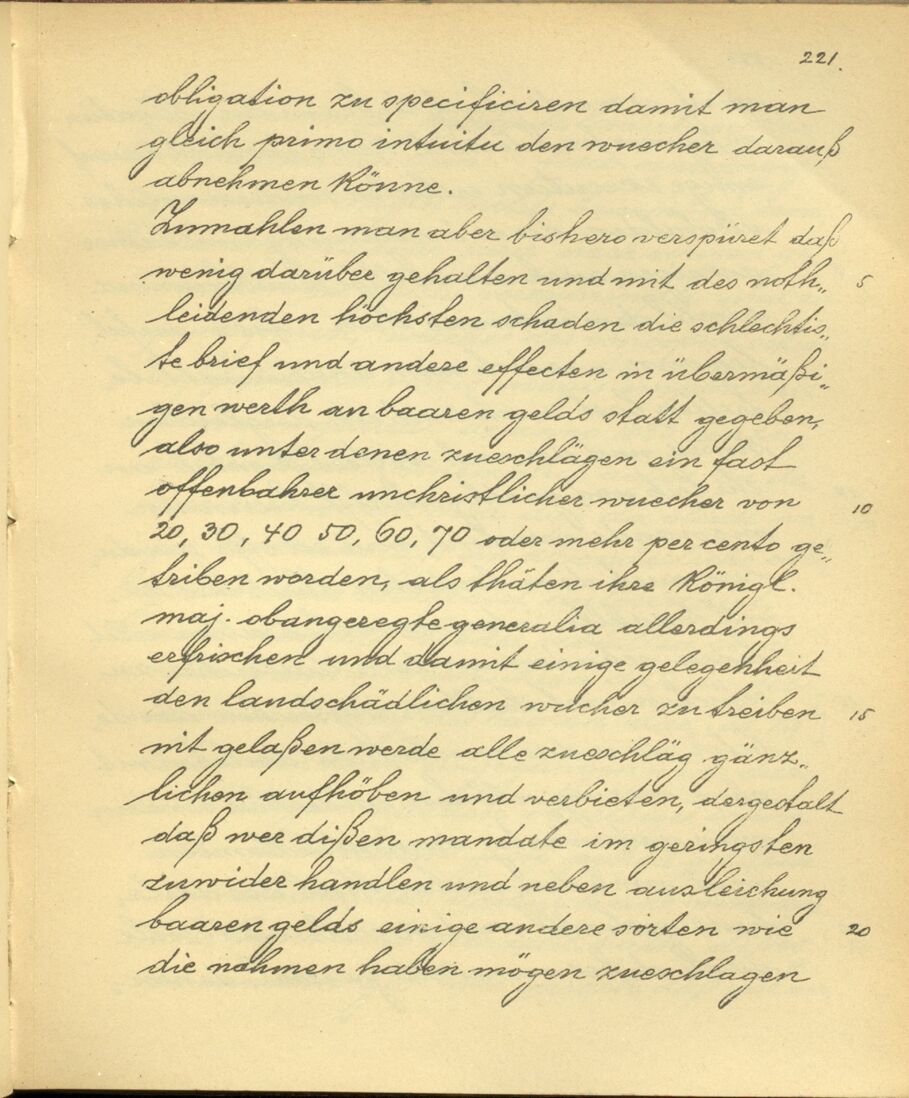 221.
obligation zu specificiren damit man
gleich primo intuitu den wuecher darauß
abnehmen könne.
Zumahlen man aber bishero verspüret daß
wenig darüber gehalten und mit des noth„ 5
leidenden höchsten schaden die schlechtis„
te brief und andere effecten in übermäßi„
gen werth an baaren gelds statt gegeben,
also unter denen zueschlägen ein fast
offenbahrer unchristlicher wuecher von 10
20, 30, 40 50, 60, 70 oder mehr per cento ge„
triben worden, als thäten ihre Königl.
maj. obangeregte generalia allerdings
erfrischen und damit einige gelegenheit
den landschädlichen wucher zu treiben 15
nit gelaßen werde alle zueschläg gänz„
lichen aufhöben und verbieten, dergestalt
daß wer dißen mandate im geringsten
zuwider handlen und neben ausleichung
baaren gelds einige andere sorten wie 20
die nahmen haben mögen zueschlagen